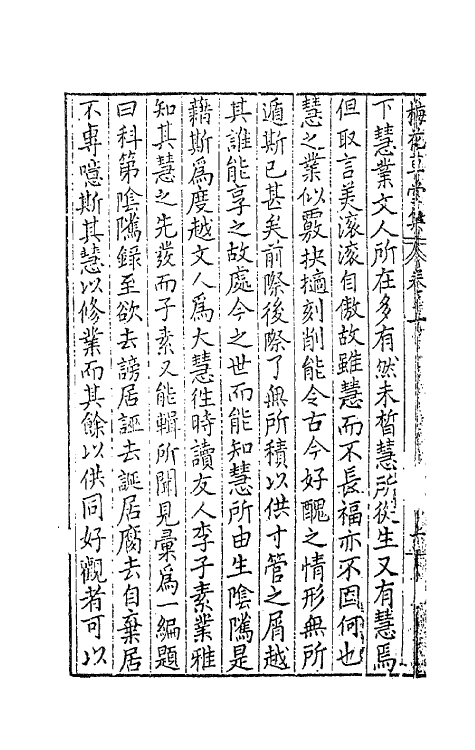 梅花草堂集 卷
下慧業文人所在多有然未晳慧所從生又有慧焉
但取言美滚滚自傲故雖慧而不長福亦不固何也
慧之業似覈抉擿刻削能令古今好醜之情形無所
遁斯已甚矣前際後際了無所積以供寸管之屑越
其誰能享之故處今之世而能知慧所由生陰隲是
藉斯爲度越文人爲大慧徃時讀友人李子素業雅
知其慧之先發而子素又能輯所聞見彙爲一編題
曰科第陰隲録至欲去謗居誣去誕居腐去自棄居
不專噫斯其慧以修業而其餘以供同好觀者可以